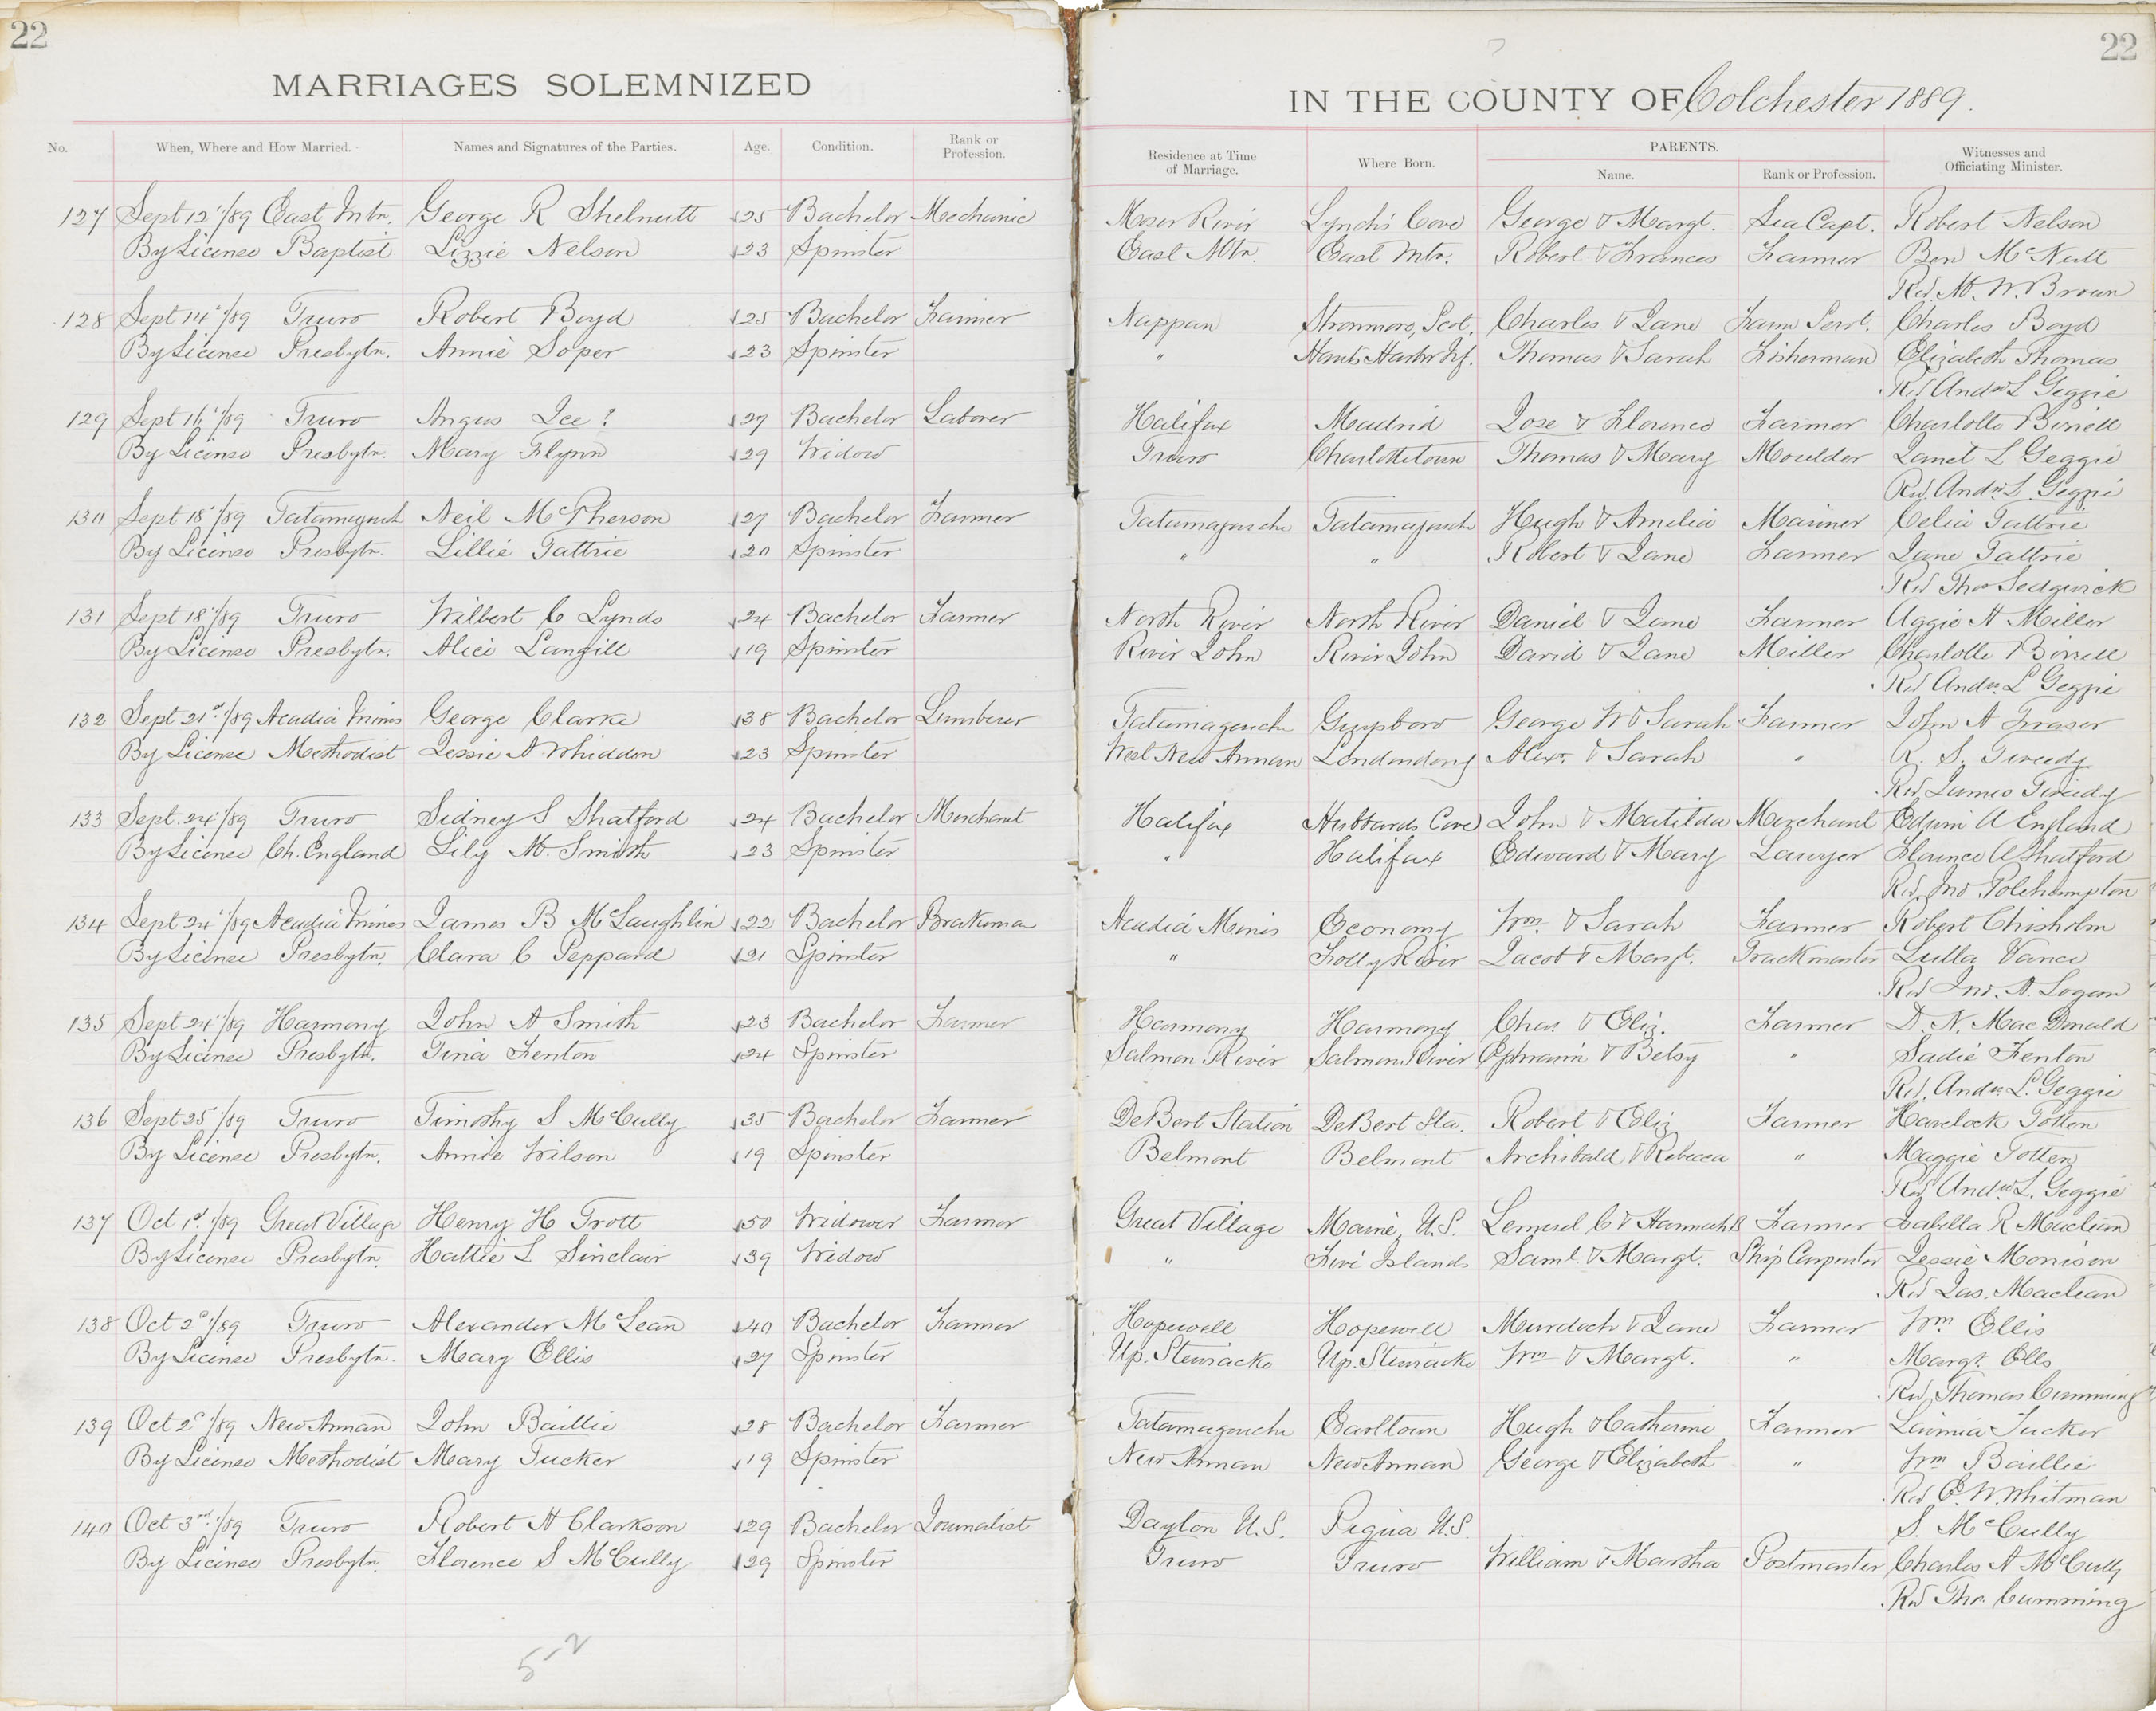 22
22
MARRIAGES SOLEMNIZED
IN THE COUNTY OF Colchester 1889.
No. When, Where and How Married. Names and Signatures of the Parties. Age. Condition. Rank or Profession. Residence at Time of Marriage. Where Born. PARENTS. Name. Rank or Profession. Witnesses and Officiating Minister.
127 Sept 12"/89 East Mtn. George R Shelnutt 25 Bachelor Mechanic Moser River Lynch's Cove George & Margt. Sea Capt. Robert Nelson
By License Baptist Lizzie Nelson 23 Spinster East Mtn. East Mtn. Robert & Frances Farmer Ben McNutt
Rev. M. W. Brown
128 Sept 14"/89 Truro Robert Boyd 25 Bachelor Farmer Nappan Scot. Charles & Jane Farm Servt. Charles Boyd
By License Presbytn. Annie Soper 23 Spinster " Harbor Nf. Thomas & Sarah Fisherman Elizabeth Thomas
Rev Andw L Geggie
129 Sept 16"/89 Truro Angus Ice? 27 Bachelor Laborer Halifax Madrid Jose & Florence Farmer Charlotte Birrell
By License Presbytn. Mary Flynn 29 Widow Truro Charlottetown Thomas & Mary Moulder Janet L Geggie
Rev. Andw L Geggie
130 Sept 18"/89 Tatamagouch Neil McPherson 27 Bachelor Farmer Tatamagouche Tatamagouch Hugh & Amelia Mariner Celia Tattrie
By License Presbytn. Lillie Tattrie 20 Spinster " " Robert & Jane Farmer Jane Tattrie
Rev Thos Sedgwick
131 Sept 18"/89 Truro Wilbert C Lynds 24 Bachelor Farmer North River North River Daniel & Jane Farmer Aggie A Miller
By License Presbytn. Alice Langill 19 Spinster River John River John David & Jane Miller Charlotte Birrell
Rev Andw. L Geggie
132 Sept 21st/89 Acadia Mines George Clarke 38 Bachelor Lumberer Tatamagouche Guysboro George W & Sarah Farmer John A Fraser
By License Methodist Jessie A Whidden 23 Spinster West New Annan Londonderry Alexr. & Sarah " R. S. Tweedy
Rev James Tweedy
133 Sept. 24"/89 Truro Sidney S Shatford 24 Bachelor Merchant Halifax Hubbards Cove John & Matilda Merchant Edwin A England
By License Ch. England Lily M. Smith 23 Spinster " Halifax Edward & Mary Lawyer Florence A Shatford
Rev. Jno Polehampton
134 Sept 24"/89 Acadia Mines James B McLaughlin 22 Bachelor Brakeman Acadia Mines Economy Wm. & Sarah Farmer Robert Chisholm
By License Presbytn. Clara C Peppard 21 Spinster " Folly River Jacob & Margt. Trackmaster Lulla Vance
Rev Jno. A. Logan
135 Sept 24"/89 Harmony John A Smith 23 Bachelor Farmer Harmony Harmony Chas. & Eliz. Farmer D. N. MacDonald
By License Presbytn. Tina Fenton 24 Spinster Salmon River Salmon River Ephraim & Betsy " Sadie Fenton
Rev. Andw. L. Geggie
136 Sept 25"/89 Truro Timothy S McCully 35 Bachelor Farmer DeBert Station DeBert Sta. Robert & Eliz Farmer Havelock Totten
By License Presbytn. Annie Wilson 19 Spinster Belmont Belmont Archibald & Rebecca " Maggie Totten
Rev Andw L. Geggie
137 Oct 1st/89 Great Village Henry H Trott 50 Widower Farmer Great Village Maine, U.S. Lemuel C & Hannah B Farmer Isabella R Maclean
By License Presbytn Hattie L Sinclair 39 Widow " Five Islands Saml. & Margt. Ship Carpenter Jessie Morrison
Rev Jas. Maclean
138 Oct 2d/89 Truro Alexander McLean 40 Bachelor Farmer Hopewell Hopewell Murdoch & Jane Farmer Wm. Ellis
By License Presbytn. Mary Ellis 27 Spinster Up. Stewiacke Up. Stewiacke Wm & Margt. " Margt. Ells
Rev. Thomas Cumming
139 Oct 2d/89 New Annan John Baillie 28 Bachelor Farmer Tatamagouche Earltown Hugh & Catherine Farmer Lavinia Tucker
By License Methodist Mary Tucker 19 Spinster New Annan New Annan George & Elizabeth " Wm Baillie
Rev E. W. Whitman
140 Oct 3rd/89 Truro Robert H Clarkson 29 Bachelor Journalist Dayton U.S. Piqua U.S. S. McCully
By License Presbytn. Florence S McCully 29 Spinster Truro Truro William & Martha Postmaster Charles A McCully
Rev Thos. Cumming
5-2